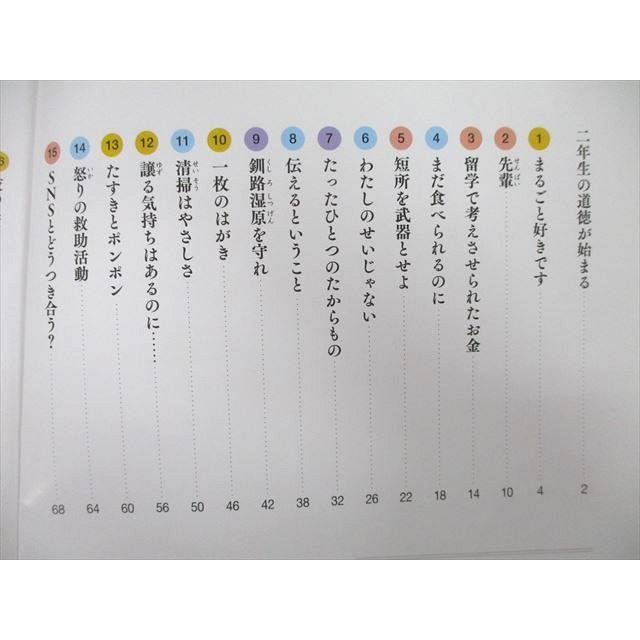 二年生の道徳が始まる 2
1 まるごと好きです 4
2 先輩 せんぱい 10
3 留学で考えさせられたお金 14
4 まだ食べられるのに 18
5 短所を武器とせよ 22
6 わたしのせいじゃない 26
7 たったひとつのたからもの 32
8 伝えるということ 38
9 釧路湿原を守れ くしろしつげん 42
10 一枚のはがき 46
11 清掃はやさしさ せいそう 50
12 譲る気持ちはあるのに…… ゆず 56
13 たすきとポンポン 60
14 怒りの救助活動 いか 64
15 SNSとどうつき合う? 68